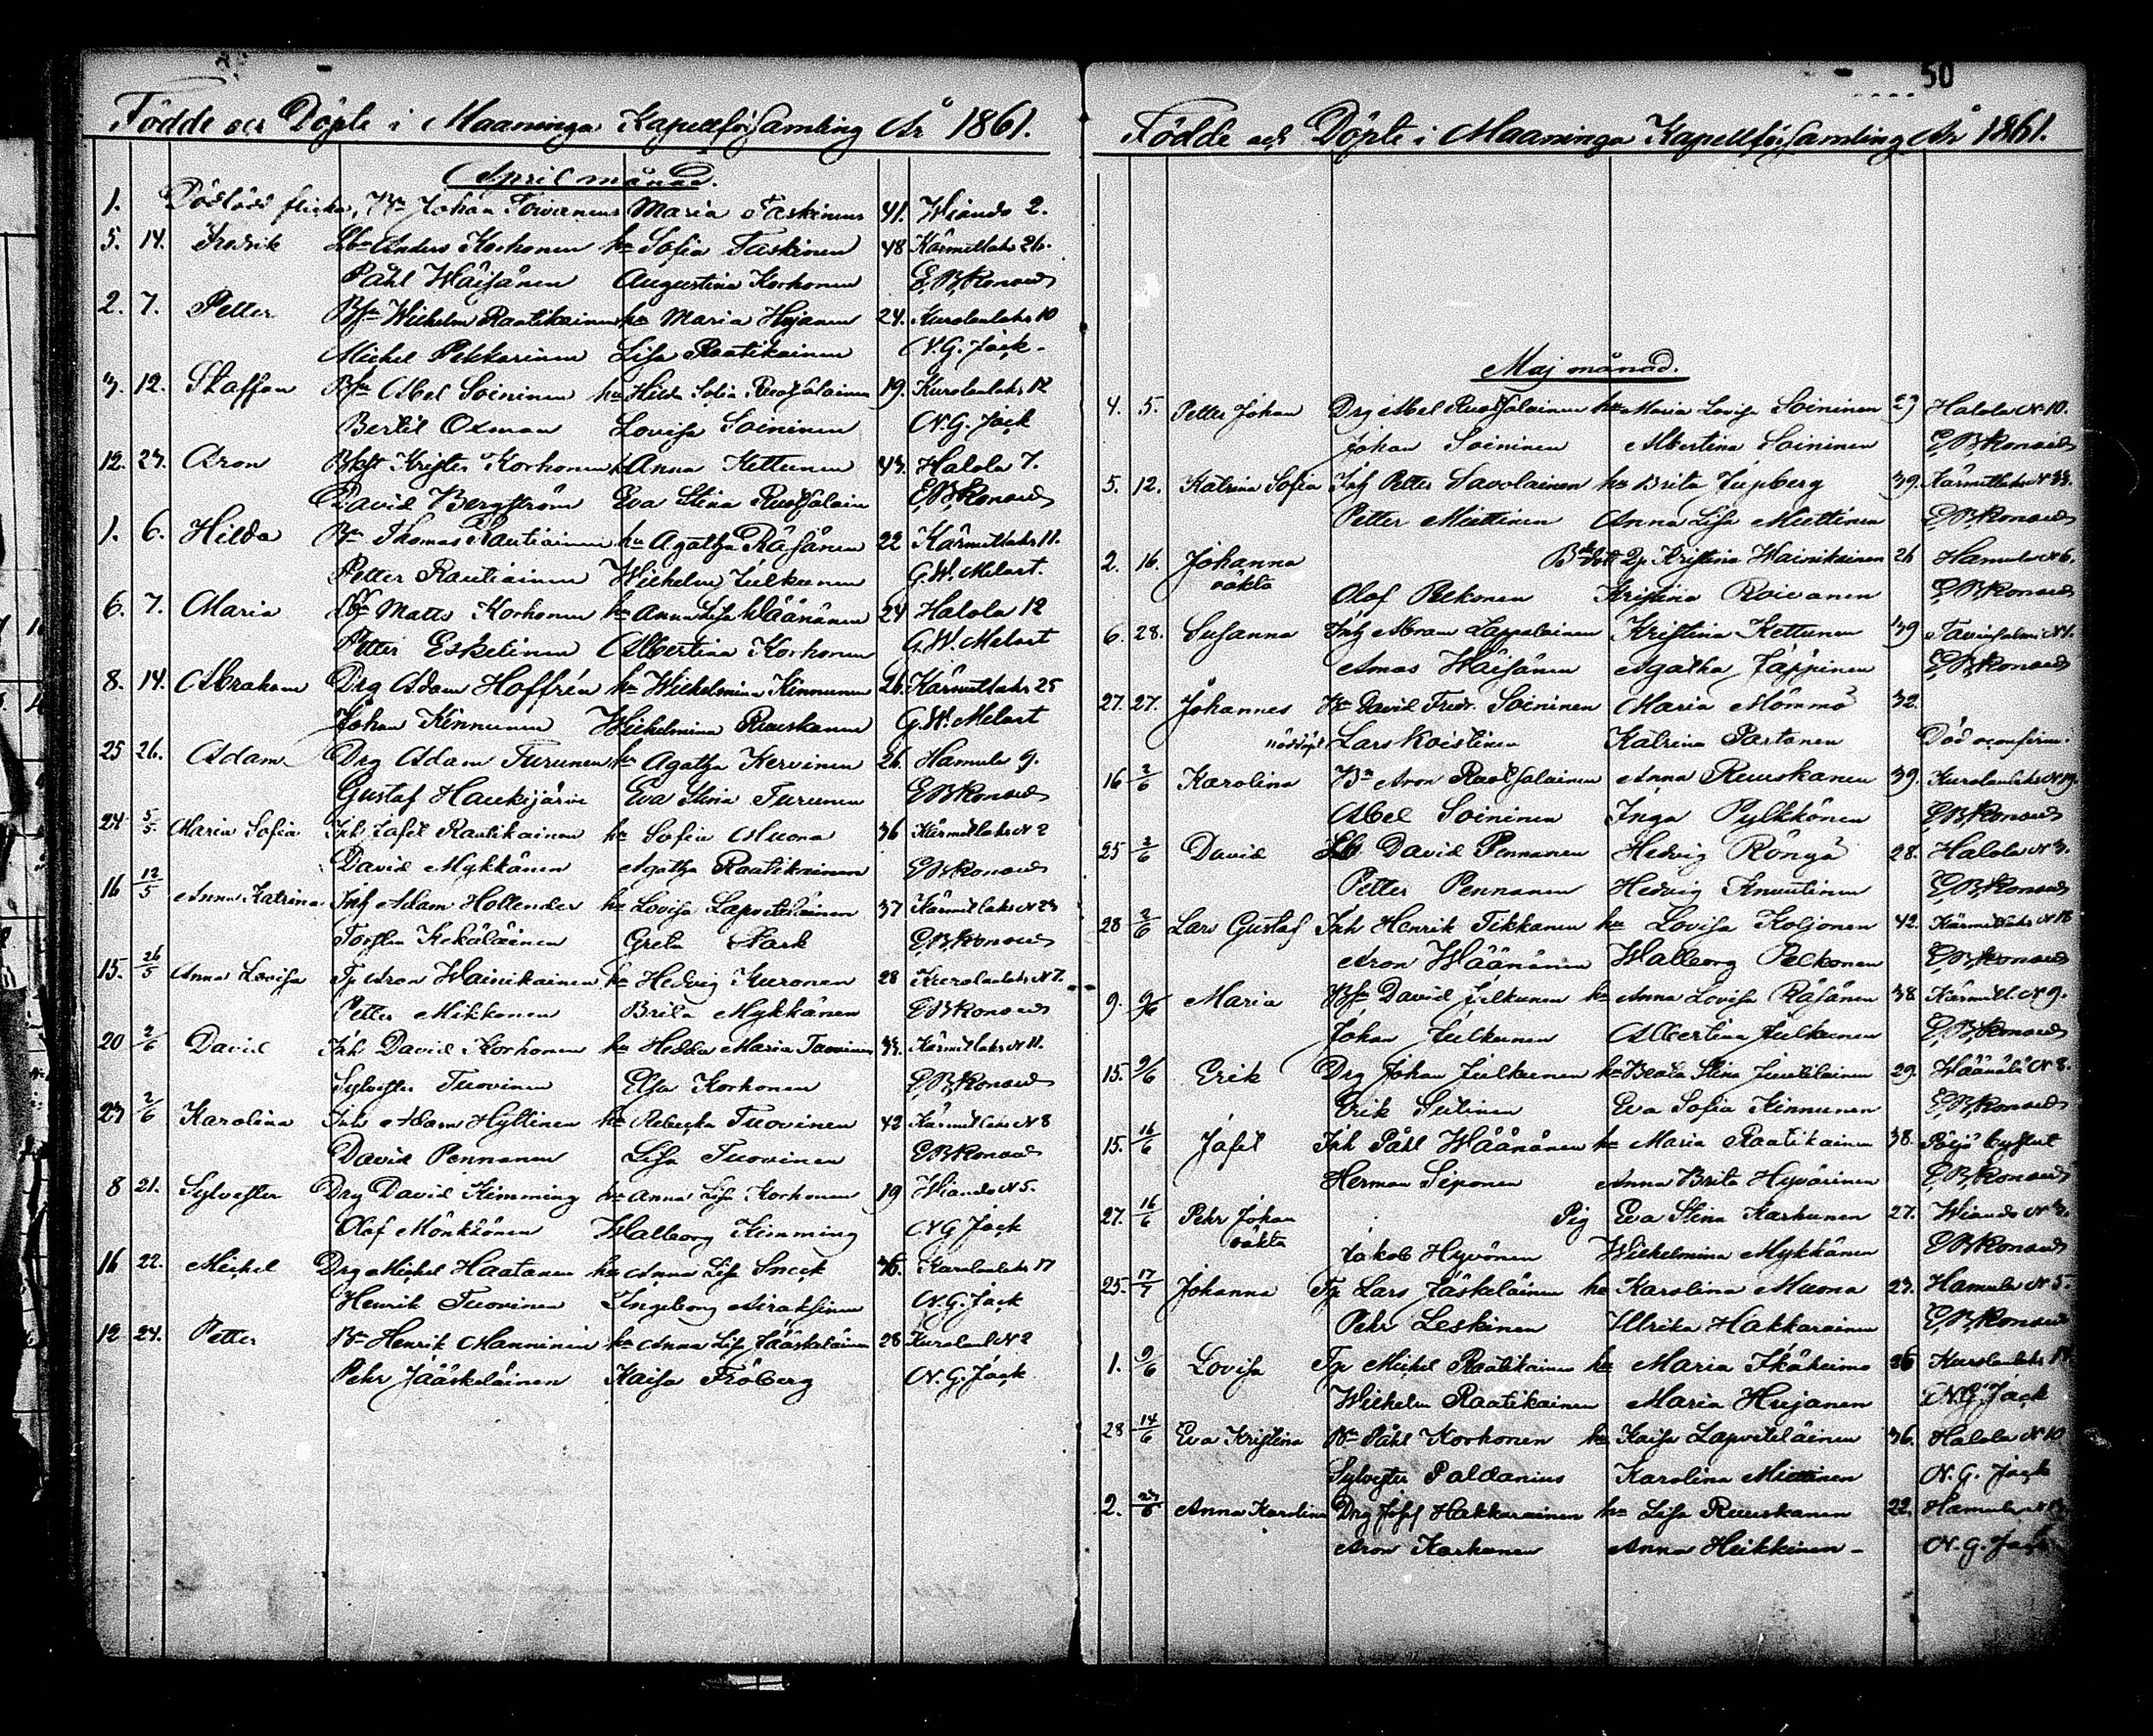 Födde och Döpte i Maaninga Kapellförsamling År 1861.
April månad.
1. Dödfödd flicka, Bn Johan Toivanens Maria Taskinens 41. Wiando 2.
5. 14. Fredrik Lbn Anders Korhonen hu Sofia Taskinen 48 Kärmitlaks 26.
Påhl Wäisänen Augustina Korhonen E, B, Konsad
2. 7. Petter Bsn Wilhelm Raatikainen hu Maria Hujanen 24. Kurolanlaks 10
Michel Pekkarinen Lisa Raatikainen N. G. Jack
3. 12. Staffan Bsn Abel Soininen hu Hilda Sofia Ruotsalainen 19. Kurolanlaks 12
Bertil Oxman Lovisa Soininen N. G. Jack
12. 23. Aron Krister Korhonen Anna Kettunen 43. Halola 7.
David Bergström Eva Stina Ruotsalain E, B, Konsad
1. 6. Hilda Bn Thomas Rautiainen hu Agatha Räsänen 22 Kärmitlaks 11.
Petter Rautiainen Wilhelm Julkunen G. W. Melart.
6. 7. Maria Matts Korhonen hu Anna Lisa Väänänen 24 Halola 12
Petter Eskelinen Albertina Korhonen G. W. Melart
8. 14. Abraham Drg Adam Hoffrén hu Wilhelmina Kinnunen 26. Kärmitlaks 25
Johan Kinnunen Wilhelmina Ruuskanen G. W. Melart
25 26. Adam Drg Adam Turunen hu Agatha Kervinen 26. Hamula 9.
Gustaf Haukijärvi Eva Stina Turunen E B Konsad
24 5/5. Maria Sofia Inh Jafet Raatikainen hu Sofia Muona 36 Kärmitlaks N 2
David Mykkänen Agatha Raatikainen E B Konsad
16 12/5 Anna Katrina Inh Adam Hollender hu Lovisa Lapveteläinen 37 Kärmitlaks N 23
Torsten Kekäläinen Greta Stark E B Konsad
15. 26/5 Anna Lovisa Tp Aron Wainikainen hu Hedvig Kuronen 28 Kurolanlaks N 7.
Petter Mikkonen Brita Mykkänen E B Konsad
20 2/6 David Inh David Korhonen hu Hedda Maria Tuovinen Kärmitlaks N 11.
Sylvester Tuovinen Elsa Korhonen E B Konsad
23 2/6 Karolina Inh Adam Hyttinen hu Rebecka Tuovinen 42 Kärmitlaks N 8
David Pennanen Lisa Tuovinen E B Konsad
8 21. Sylvester Drg David Kimming hu Anna Lisa Korhonen 19 Wiando N 5.
Olof Mönkkönen Walborg Kimming N G Jack
16 22. Michel Drg Michel Haatanen hu Anna Lisa Sneck Kurolanlaks 17
Henrik Tuovinen Ingeborg Airaksinen N. G. Jack
12 24. Petter Bn Henrik Manninen hu Anna Lisa Jääskeläinen 28 Kurolanl N 2
Pehr Jääskeläinen Kaisa Fröberg N. G. Jack
50
Födde och Döpte i Maaninga Kapellförsamling År 1861.
Maj månad.
4. 5. Petter Johan Drg Abel Ruotsalainen hu Maria Lovisa Soininen 29 Halola N 10.
Johan Soininen Albertina Soininen E, B, Konsad
5. 12. Katrina Sofia Inh Petter Savolainen hu Brita Jupberg 39. Kärmitlaks N 33.
Petter Miettinen Anna Lisa Miettinen E B Konsad
2. 16. Johanna Kristina Wainikainen 26 Hamula N 6.
oäkta Olof Pekonen Kristina Roivanen E B Konsad
6. 28. Susanna Inh Abram Lappalainen Kristina Kettunen 39 Tavinsalmi N 1.
Amos Wäisänen Agatha Jäppinen E, B, Konsad
27. 27. Johannes Bn David Fredr. Soininen Maria Mömmö 32.
nöddöpt Lars Koistinen Katrina Partanen Död
16 2/6 Karolina Bn Aron Ruotsalainen Anna Ruuskanen 39. Kurolanlaks N 19.
Abel Soininen Inga Pylkkönen E, B, Konsad
25 2/6 David Lb David Pennanen Hedvig Rönqä 28. Halola N 3.
Petter Pennanen Hedvig Knuutinen E, B, Konsad
28 2/6 Lars Gustaf Inh Henrik Tikkanen hu Lovisa Koljonen 42. Kärmitlaks N 18
Aron Wäänänen Walborg Pekonen E, B, Konsad
9. 9/6 Maria Bsn David Julkunen hu Anna Lovisa Räsänen 38 Kärmitl. N 9.
Johan Julkunen Albertina Julkunen E, B, Konsad
15. 9/6 Erik Drg Johan Julkunen hu Beata Stina Juutilainen 29. Wäänälä N 8.
Erik Sutinen Eva Sofia Kinnunen E, B, Konsad
15. 16/6 Jafet Inh Påhl Wäänänen hu Maria Raatikainen 38.
Herman Siponen Anna Brita Hyvärinen E, B, Konsad
27. 16/6 Pehr Johan Pig Eva Stina Karhunen 27. Wiando N 3.
oäkta Jakob Hyvönen Wilhelmina Mykkänen E B Konsad
25. 17/7 Johanna Tp Lars Jääskeläinen hu Karolina Muona 23. Hamula N 5.
Pehr Leskinen Ulrika Hakkarainen E, B, Konsad
1. 9/6 Lovisa Tp Michel Raatikainen hu Maria Ikäheimo 26 Kurolanlaks
Wilhelm Raatikainen Maria Hujanen N. G. Jack
28 14/6 Eva Kristina Bn Påhl Korhonen hu Kaisa Lapveteläinen 36. Halola N 10
Sylvester Paldanius Karolina Miettinen N. G. Jack
2. 23/6 Anna Karolina Drg Josef Hakkarainen hu Lisa Ruuskanen 22. Hamula
Aron Karhunen Anna Heikkinen N. G. Jack